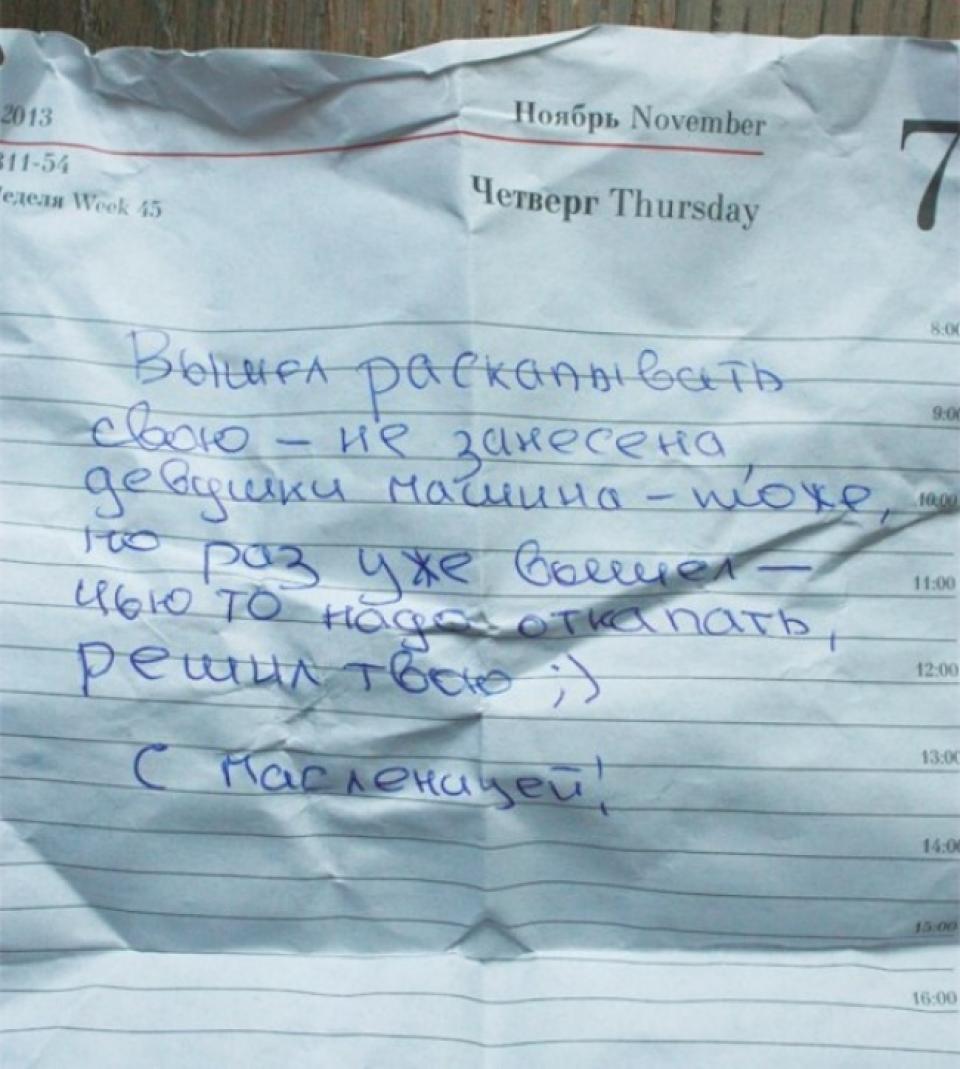 2013
Ноябрь November
7
311-54
Неделя Week 45
Четверг Thursday
8:00
Вышел раскапывать
9:00
свою – не занесена,
девушки машина – тоже,
10:00
но раз уже вышел –
11:00
чью то надо откапать,
12:00
решил твою ;)
13:00
С Масленицей!
14:00
15:00
16:00